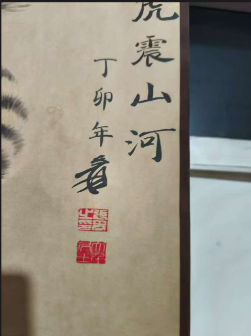 虎震山河
丁卯年
爰